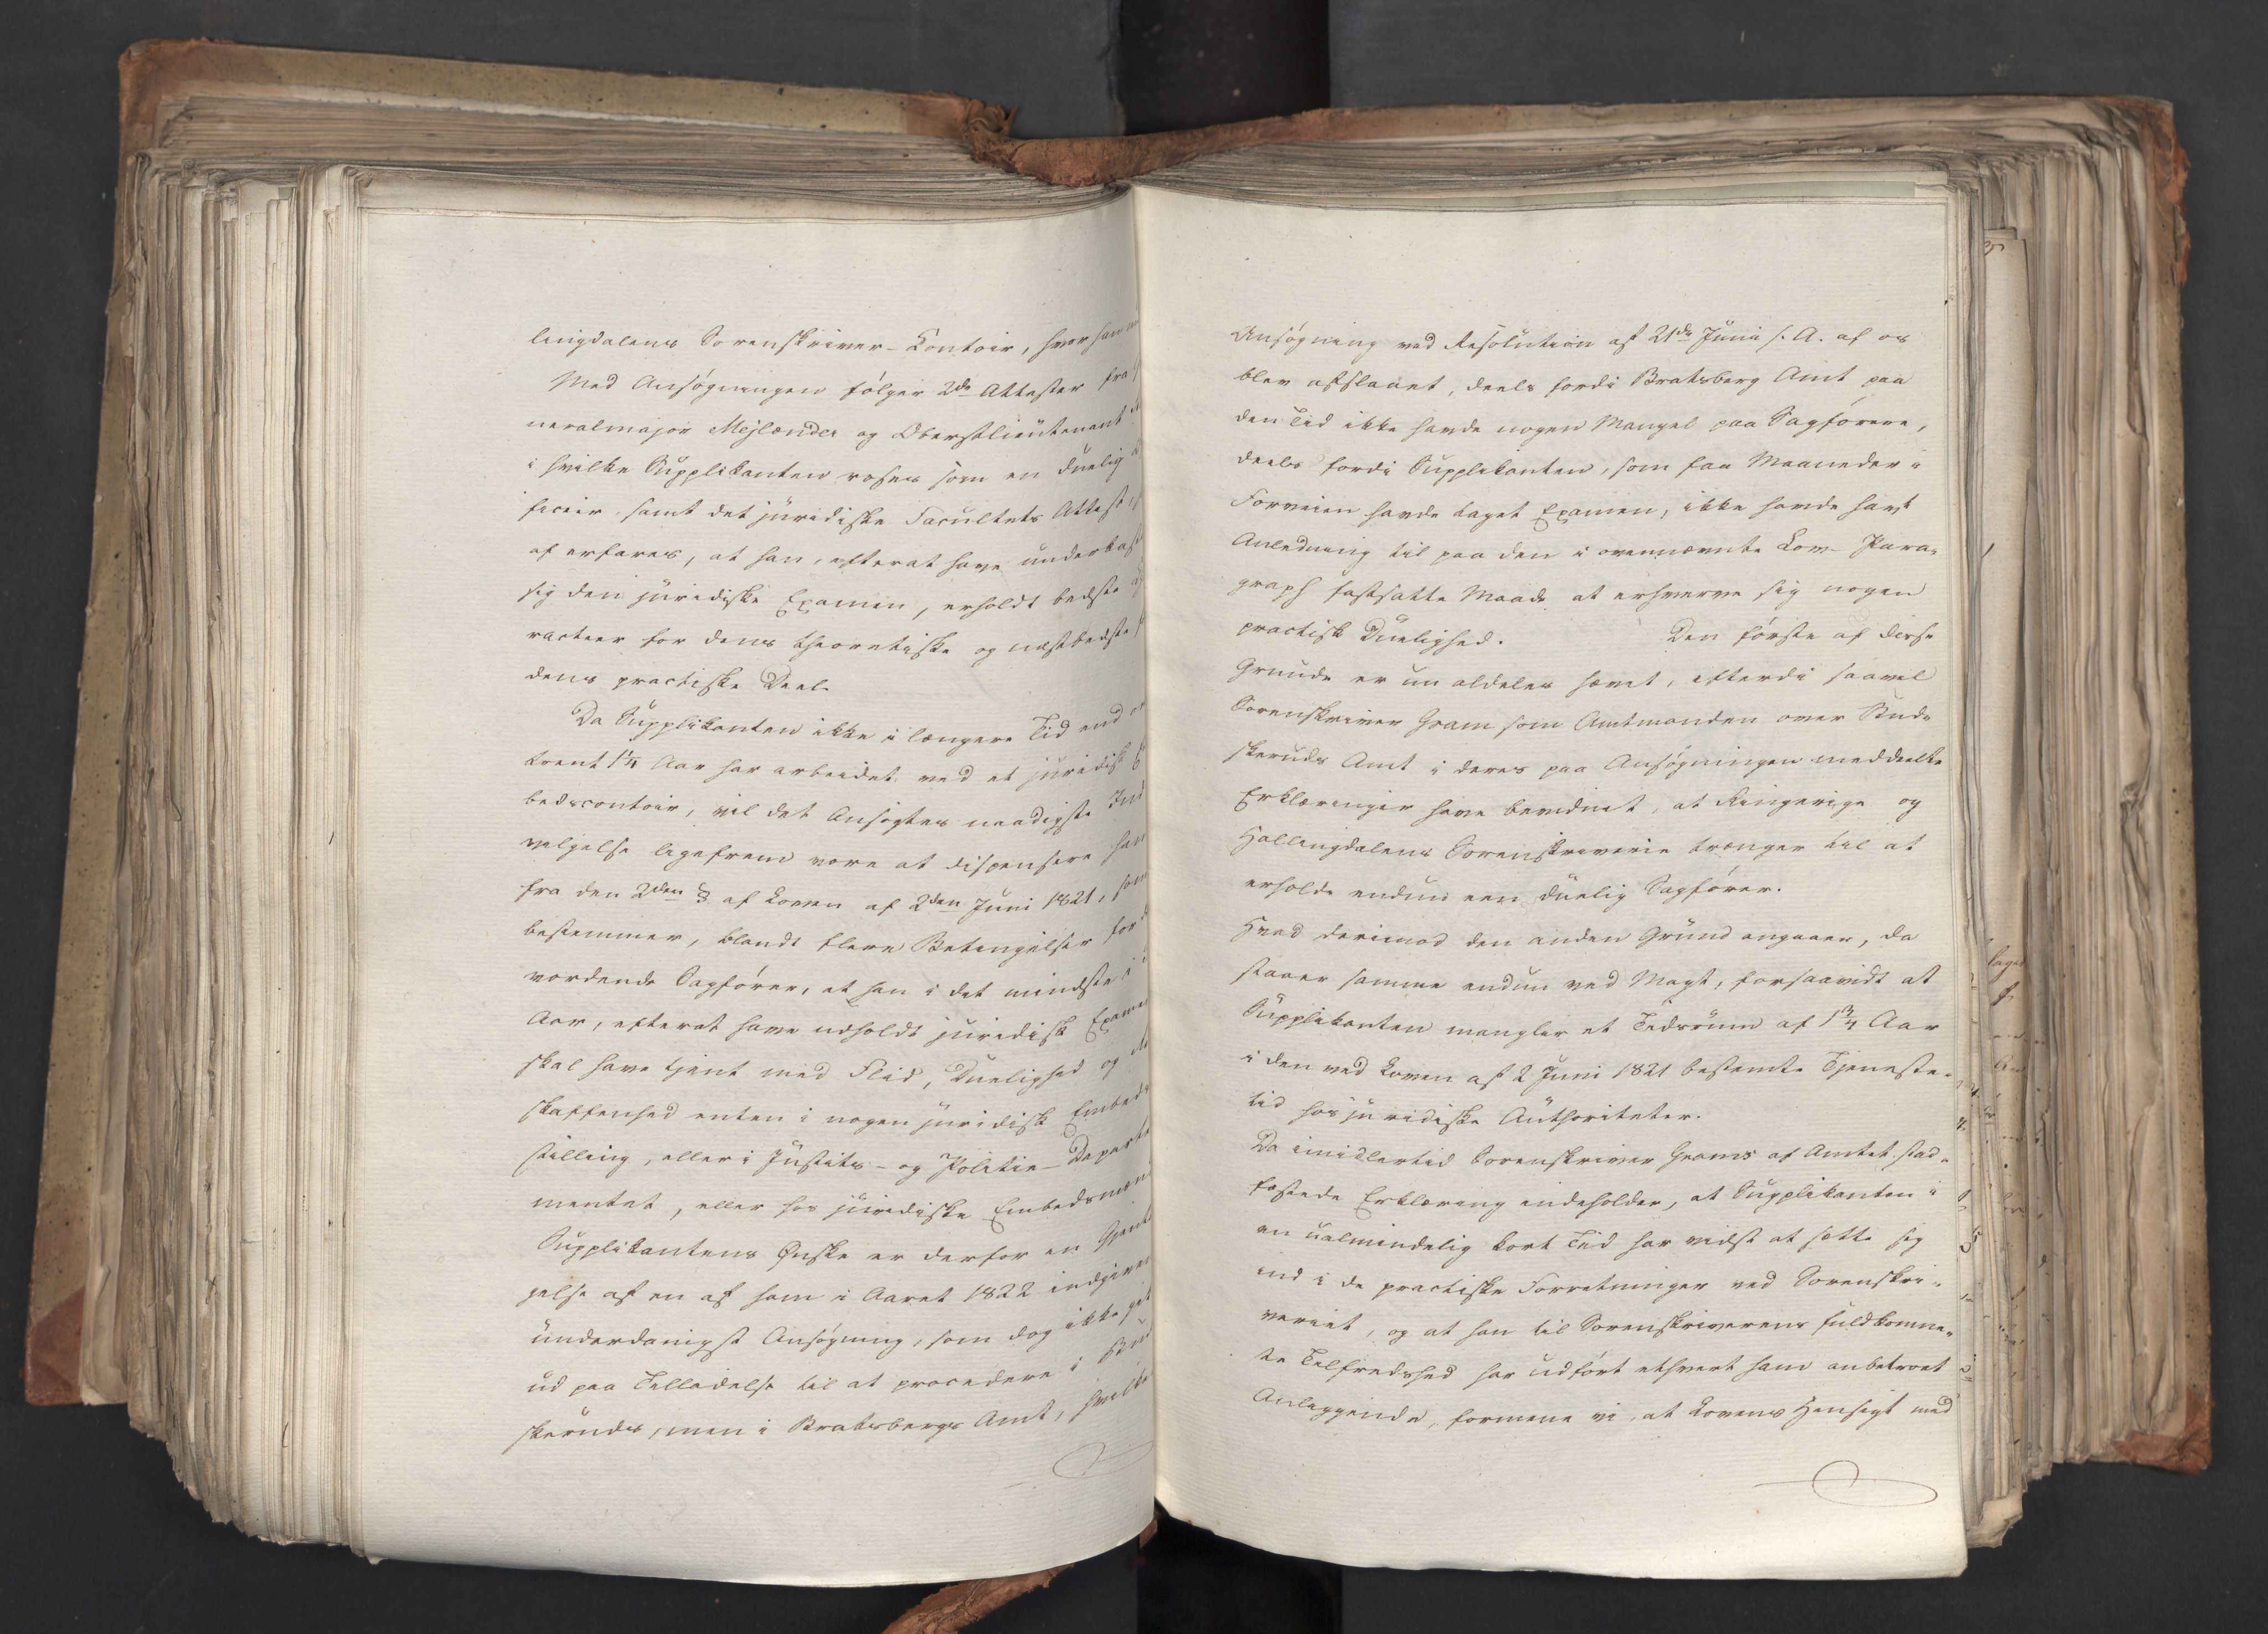 lingdalens Sorenskriver-Contoir, hvor han
Med Ansøgningen følger 2de Attester fra
neralmajor Mejlænder og Oberstlieutenant
i hvilke Supplikanten roses som en duelig
ficeir, samt det juridiske Facultets Attest,
af erfares, at han, efterat have underkast
sig den juridiske Examen, erholdt bedste
racteer for dens theoretiske og næstbedste
dens practiske Deel.
Da Supplikanten ikke i længere Tid end
trent 1¼ Aar har arbeidet ved et juridisk
bedscontoir, vil det Ansøgtes naadigste Ind
velgelse ligefrem være at dispensere ham
fra den 2den § af Loven af 2den Juni 1821, som
bestemmer, blandt flere Betingelser for
vordende Sagfører, at han i det mindste i
Aar, efterat have udholdt juridisk Examen
skal have tjent med Flid, Duelighed og
skaffenhed enten i nogen juridisk Embeds
stilling, eller i Justits- og Politie-Departe
mentet, eller hos juridiske Embedsmænd
Supplikantens Ønske er derfor en Gjenta
gelse af en af ham i Aaret 1822 indgiven
underdanigst Ansøgning, som dog ikke gik
ud paa Tilladelse til at procedere i Bus
skeruds, men i Bratsbergs Amt, hvilken
Ansøgning ved Resolution af 21de Juni s. A. af os
blev afslaaet, deels fordi Bratsberg Amt paa
den Tid ikke havde nogen Mangel paa Sagførere,
deels fordi Supplikanten, som faa Maaneder i
Forveien havde taget Examen, ikke havde havt
Anledning til paa den i ovennævnte Lov-Para-
graph fastsatte Maade at erhverve sig nogen
practisk Duelighed. Den første af disse
Grunde er nu aldeles hævet, efterdi saavel
Sorenskriver Gram som Amtmanden over Bud-
skeruds Amt i deres paa Ansøgningen meddeelte
Erklæringer have bevidnet, at Ringerige og
Hallingdalens Sorenskriverie trænger til at
erholde endnu een duelig Sagfører.
Hvad derimod den anden Grund angaaer, da
staaer samme endnu ved Magt, forsaavidt at
Supplikanten mangler et Tidsrum af 1¾ Aar
i den ved Loven af 2 Juni 1821 bestemte Tjeneste-
tid hos juridiske Authoriteter.
Da imidlertid Sorenskriver Grams af Amtet stad-
fæstede Erklæring indeholder, at Supplikanten i
en ualmindelig kort Tid har vidst at sætte sig
ind i de practiske Forretninger ved Sorenskri-
veriet, og at han til Sorenskriverens fuldkomne-
ste Tilfredshed har udført ethvert ham anbetroet
Anliggende, formene vi, at Lovens Hensigt med